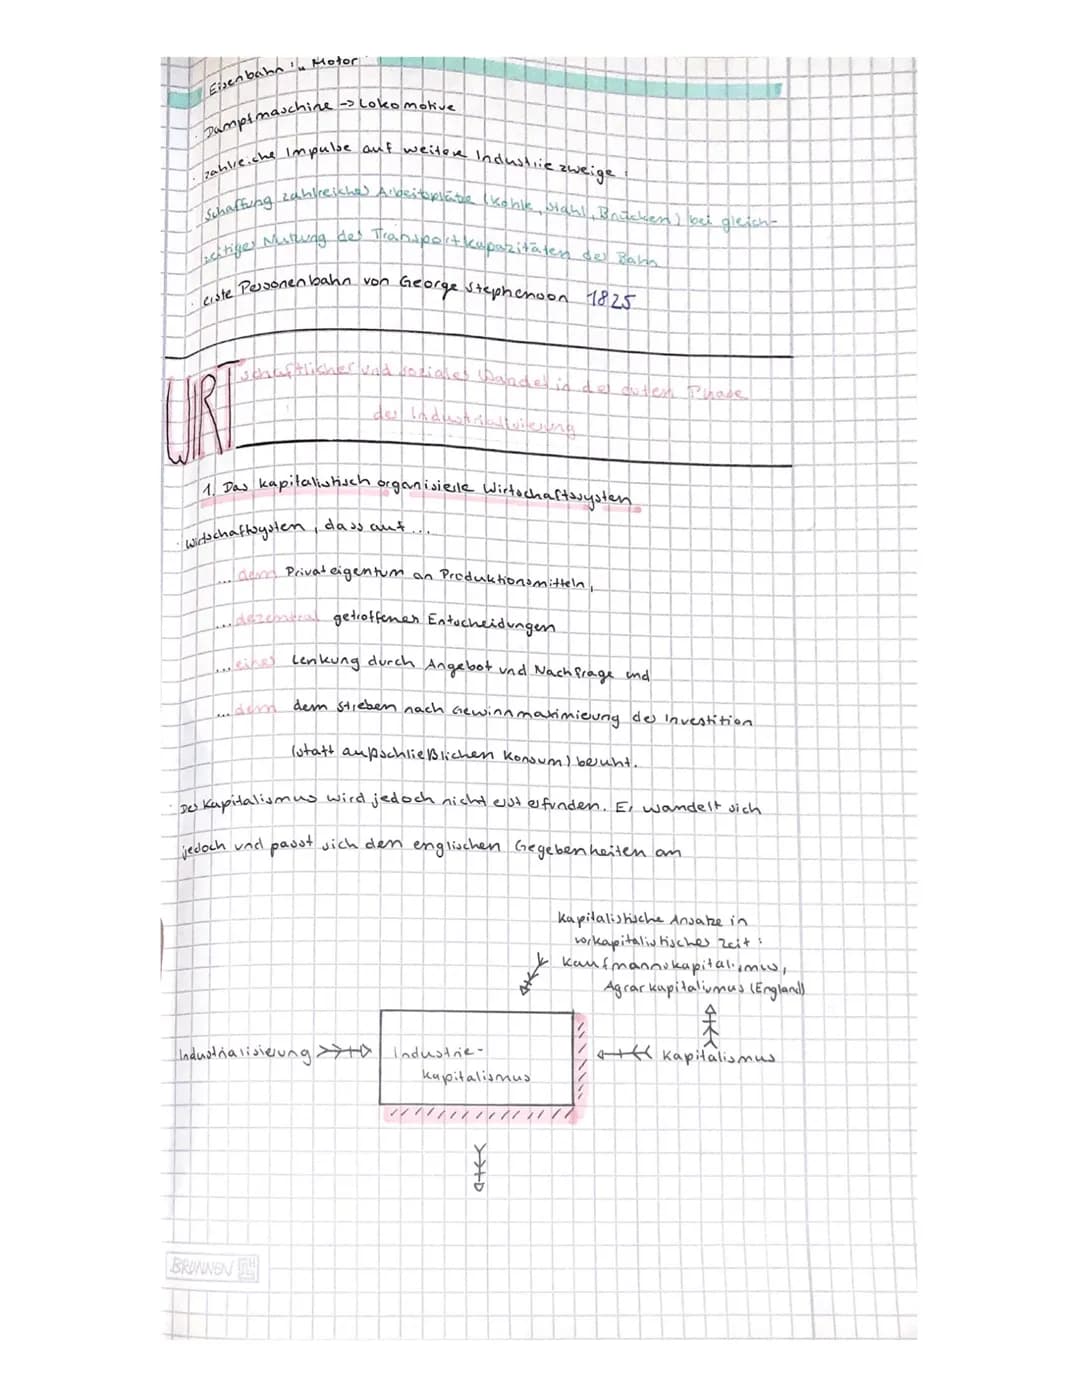 Eisenbahn in Motor
· Dampfmaschine -> Lokomotive
· zahlreiche Impulse auf weitere Industriezweige:
Schaffung zahlreicher Arbeitsplätze (Kohle, Stahl, Brücken) bei gleich-
zeitiger Nutzung der Transportkapazitäten der Bahn
· erste Personenbahn von George Stephenson 1825
WIRTschaftlicher und sozialer Wandel in der ersten Phase
der Industrialisierung
1. Das kapitalistisch organisierte Wirtschaftssystem
· Wirtschaftsystem, dass auf...
... dem Privateigentum an Produktionsmitteln,
... dezentral getroffenen Entscheidungen
... einer Lenkung durch Angebot und Nachfrage und
... dem dem Streben nach Gewinnmaximierung der Investition
(statt außschließlichen Konsum) beruht.
· Der Kapitalismus wird jedoch nicht erst erfunden. Er wandelt sich
jedoch und passt sich den englischen Gegebenheiten an
Kapitalistische Ansätze in
vorkapitalistischer Zeit:
Kaufmannskapitalismus,
Agrarkapitalismus (England)
Industrialisierung
Industrie-
kapitalismus
Kapitalismus
BRUNNEN